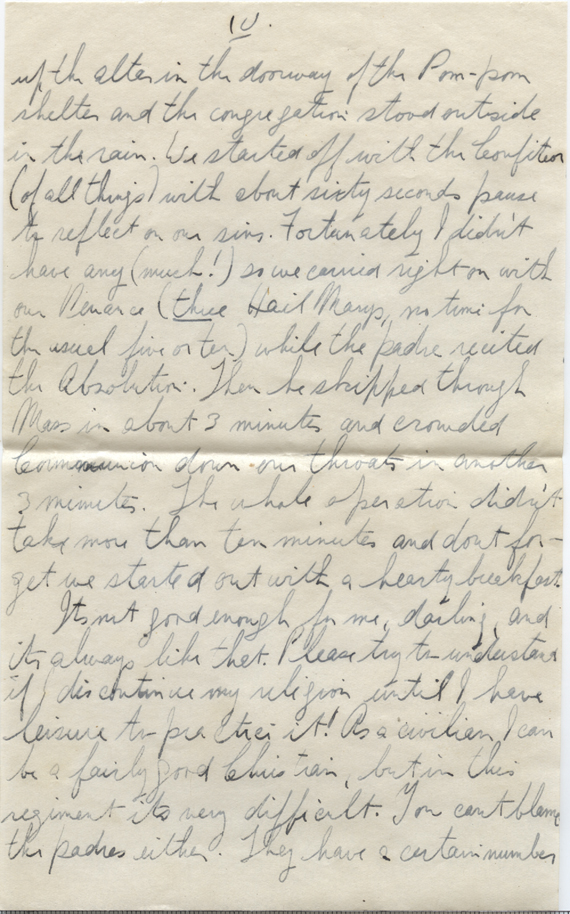 10.
up the alter in the doorway of the Pom-pom
shelter and the congregation stood outside
in the rain. We started off with the Confiteor
(of all things) with about sixty seconds pause
to reflect on our sins. Fortunately I didn't
have any (much!) so we carried right on with
our Penance (three Hail Marys, no time for
the usual five or ten) while the padre recited
the Absolution. Then he skipped through
Mass in about 3 minutes and crowded
Communion down our throats in another
3 minutes. The whole operation didn't
take more than ten minutes and dont for-
get we started out with a hearty breakfast.
Its not good enough for me, darling, and
its always like that. Please try to understand
if I discontinue my religion until I have
leisure to practice it! As a civilian I can
be a fairly good Christian, but in this
regiment its very difficult. You cant blame
the padres either. They have a certain number